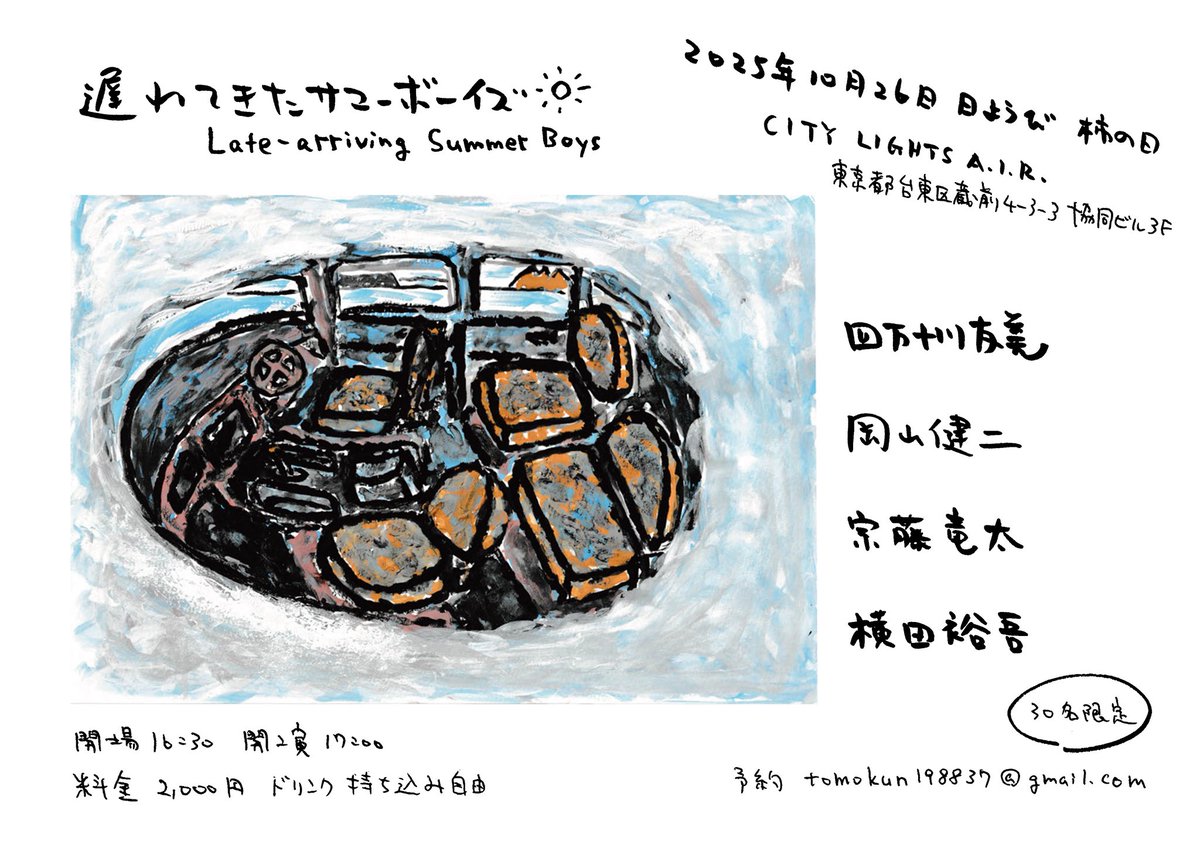 遅れてきたサマーボーイズ
Late-arriving Summer Boys
2025年10月26日 日ようび 柿の日
CITY LIGHTS A.I.R.
東京都台東区蔵前4-3-3 協同ビル3F
四万十川友美
岡山健二
宗藤竜太
横田裕吾
30名限定
開場 16:30 開演 17:00
料金 2,000円 ドリンク持ち込み自由
予約 tomokun198837@gmail.com